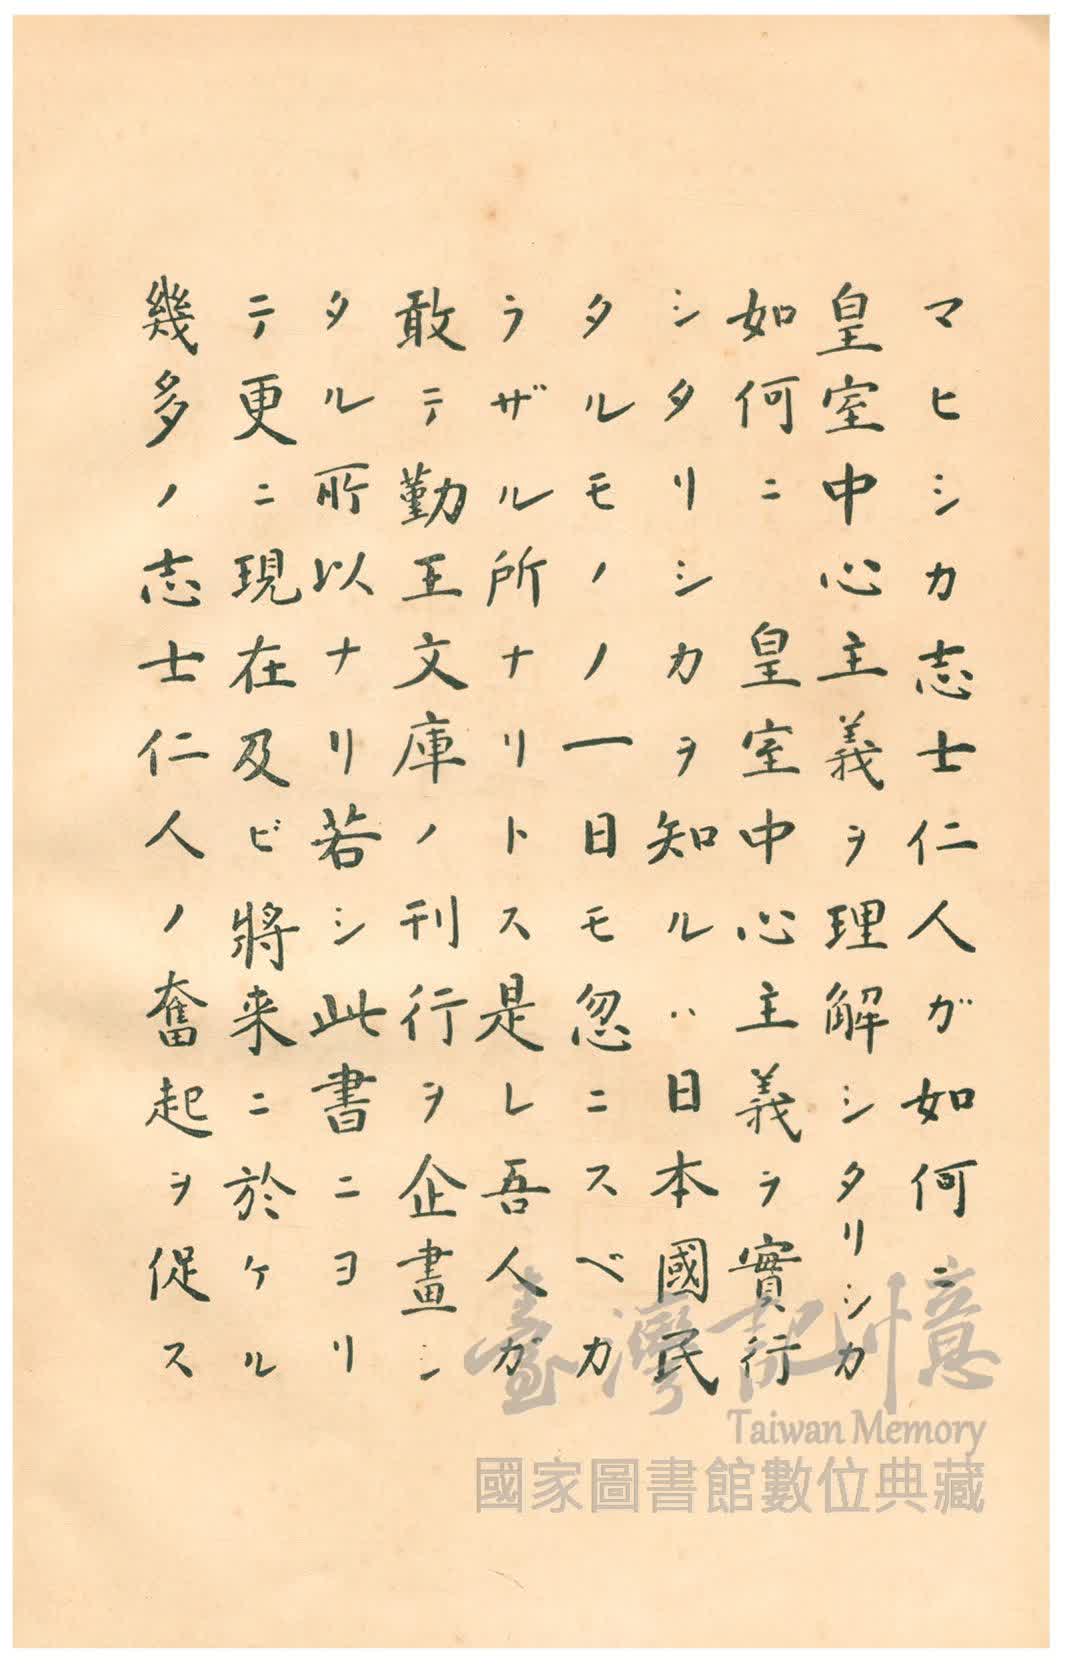 マヒシカ志士仁人ガ如何ニ
皇室中心主義ヲ理解シタリシカ
如何ニ　皇室中心主義ヲ實行
シタリシカヲ知ルハ日本國民
タルモノノ一日モ忽ニスベカ
ラザル所ナリトス是レ吾人ガ
敢テ勤王文庫ノ刊行ヲ企畫シ
タル所以ナリ若シ此書ニヨリ
テ更ニ現在及ビ將来ニ於ケル
幾多ノ志士仁人ノ奮起ヲ促ス
臺灣記憶
Taiwan Memory
國家圖書館數位典藏